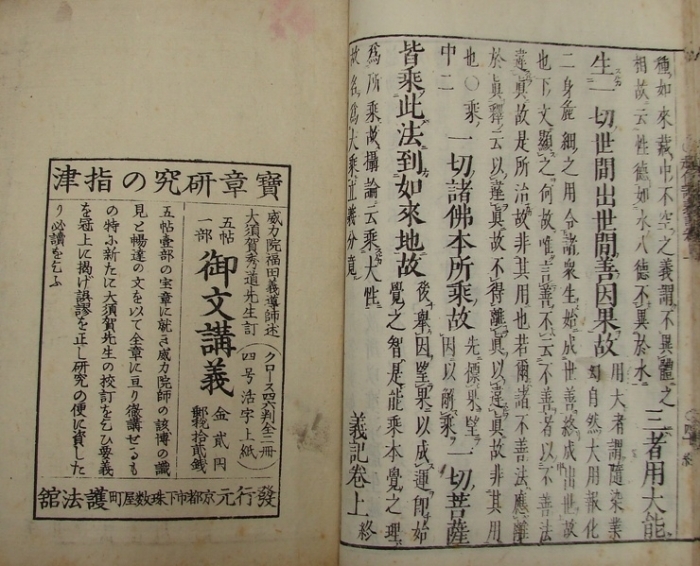 種如來藏中不空之義謂不異體之
相故云性德如水八德不異於水
三者用大能
生一切世間出世間善因果故
用大者謂隨染業
幻自然大用報化
二身麁細之用令諸衆生始成世善終成出世故
也下文顯之何故唯言善不云不善者以不善法
違眞故是所治故非其用也若爾諸不善法應離
於眞釋云以違眞故不得離眞以違眞故非其用
也○乘
中二
一切諸佛本所乘故
先標果望
因以解乘
一切菩薩
皆乘此法到如來地故
後舉因望果以成運即始
覺之智是能乘本覺之理
爲所乘故攝論云乘大性
故名爲大乘立義分竟
義記卷上終
寶章研究の指津
威力院福田義導師述
大須賀秀道先生訂
クロース四六判全二冊
四号活字上紙
五帖
一部
御文講義
金貳円
郵稅拾貳錢
五帖壹部の宝章に就き威力院師の該博の識
見と暢達の文を以て全章に亘り徹講せるも
の特ふ新たに大須賀先生の校訂を乞ひ要義
を冠上に揭げ誤謬を正し研究の便に資した
り必讀を乞ふ
發行元京都市下珠数屋町護法舘